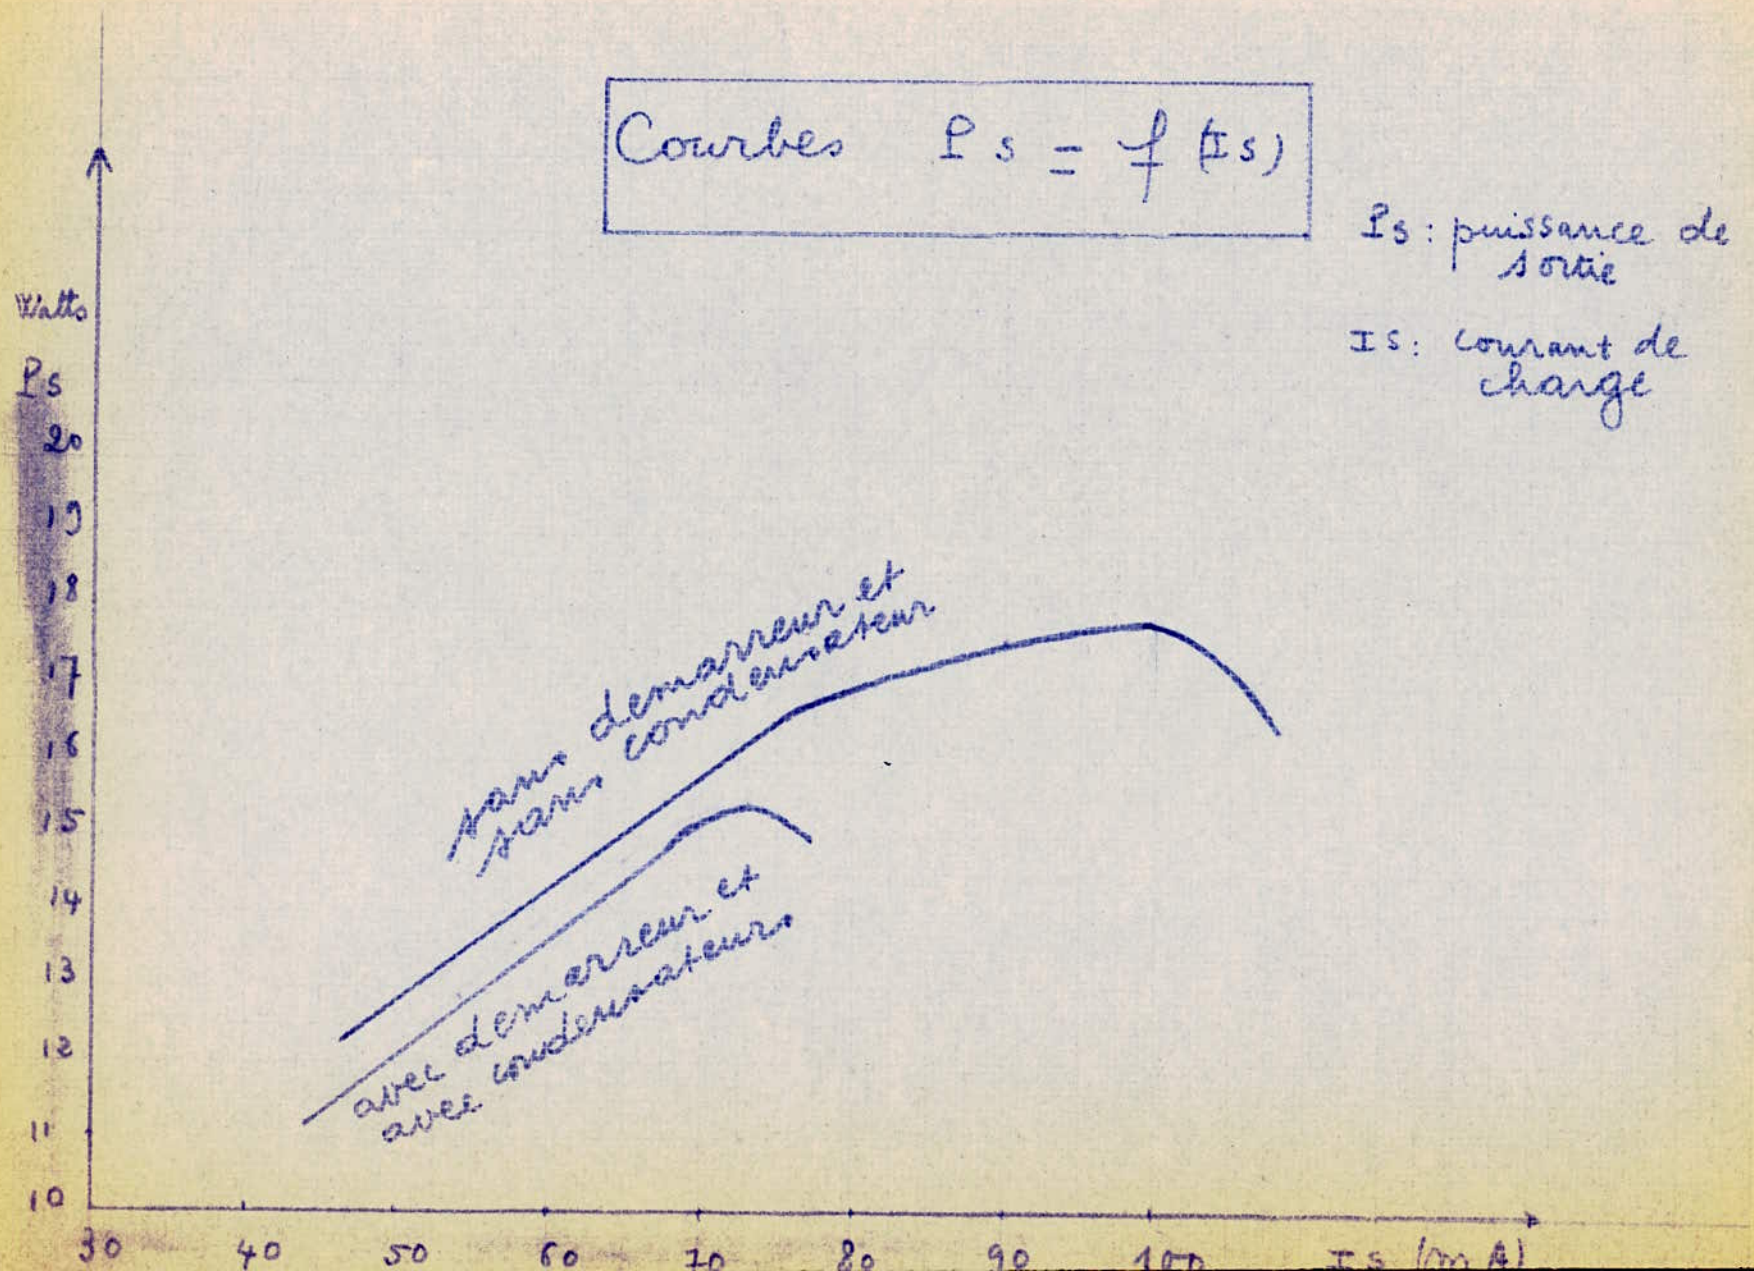 Courbes Ps = f (Is)
Ps : puissance de
sortie
Is : courant de
charge
Watts
Ps
20
19
18
17
16
15
14
13
12
11
10
sans demarreur et
sans condensateur
avec demarreur et
avec condensateurs
30 40 50 60 70 80 90 100 Is (mA)